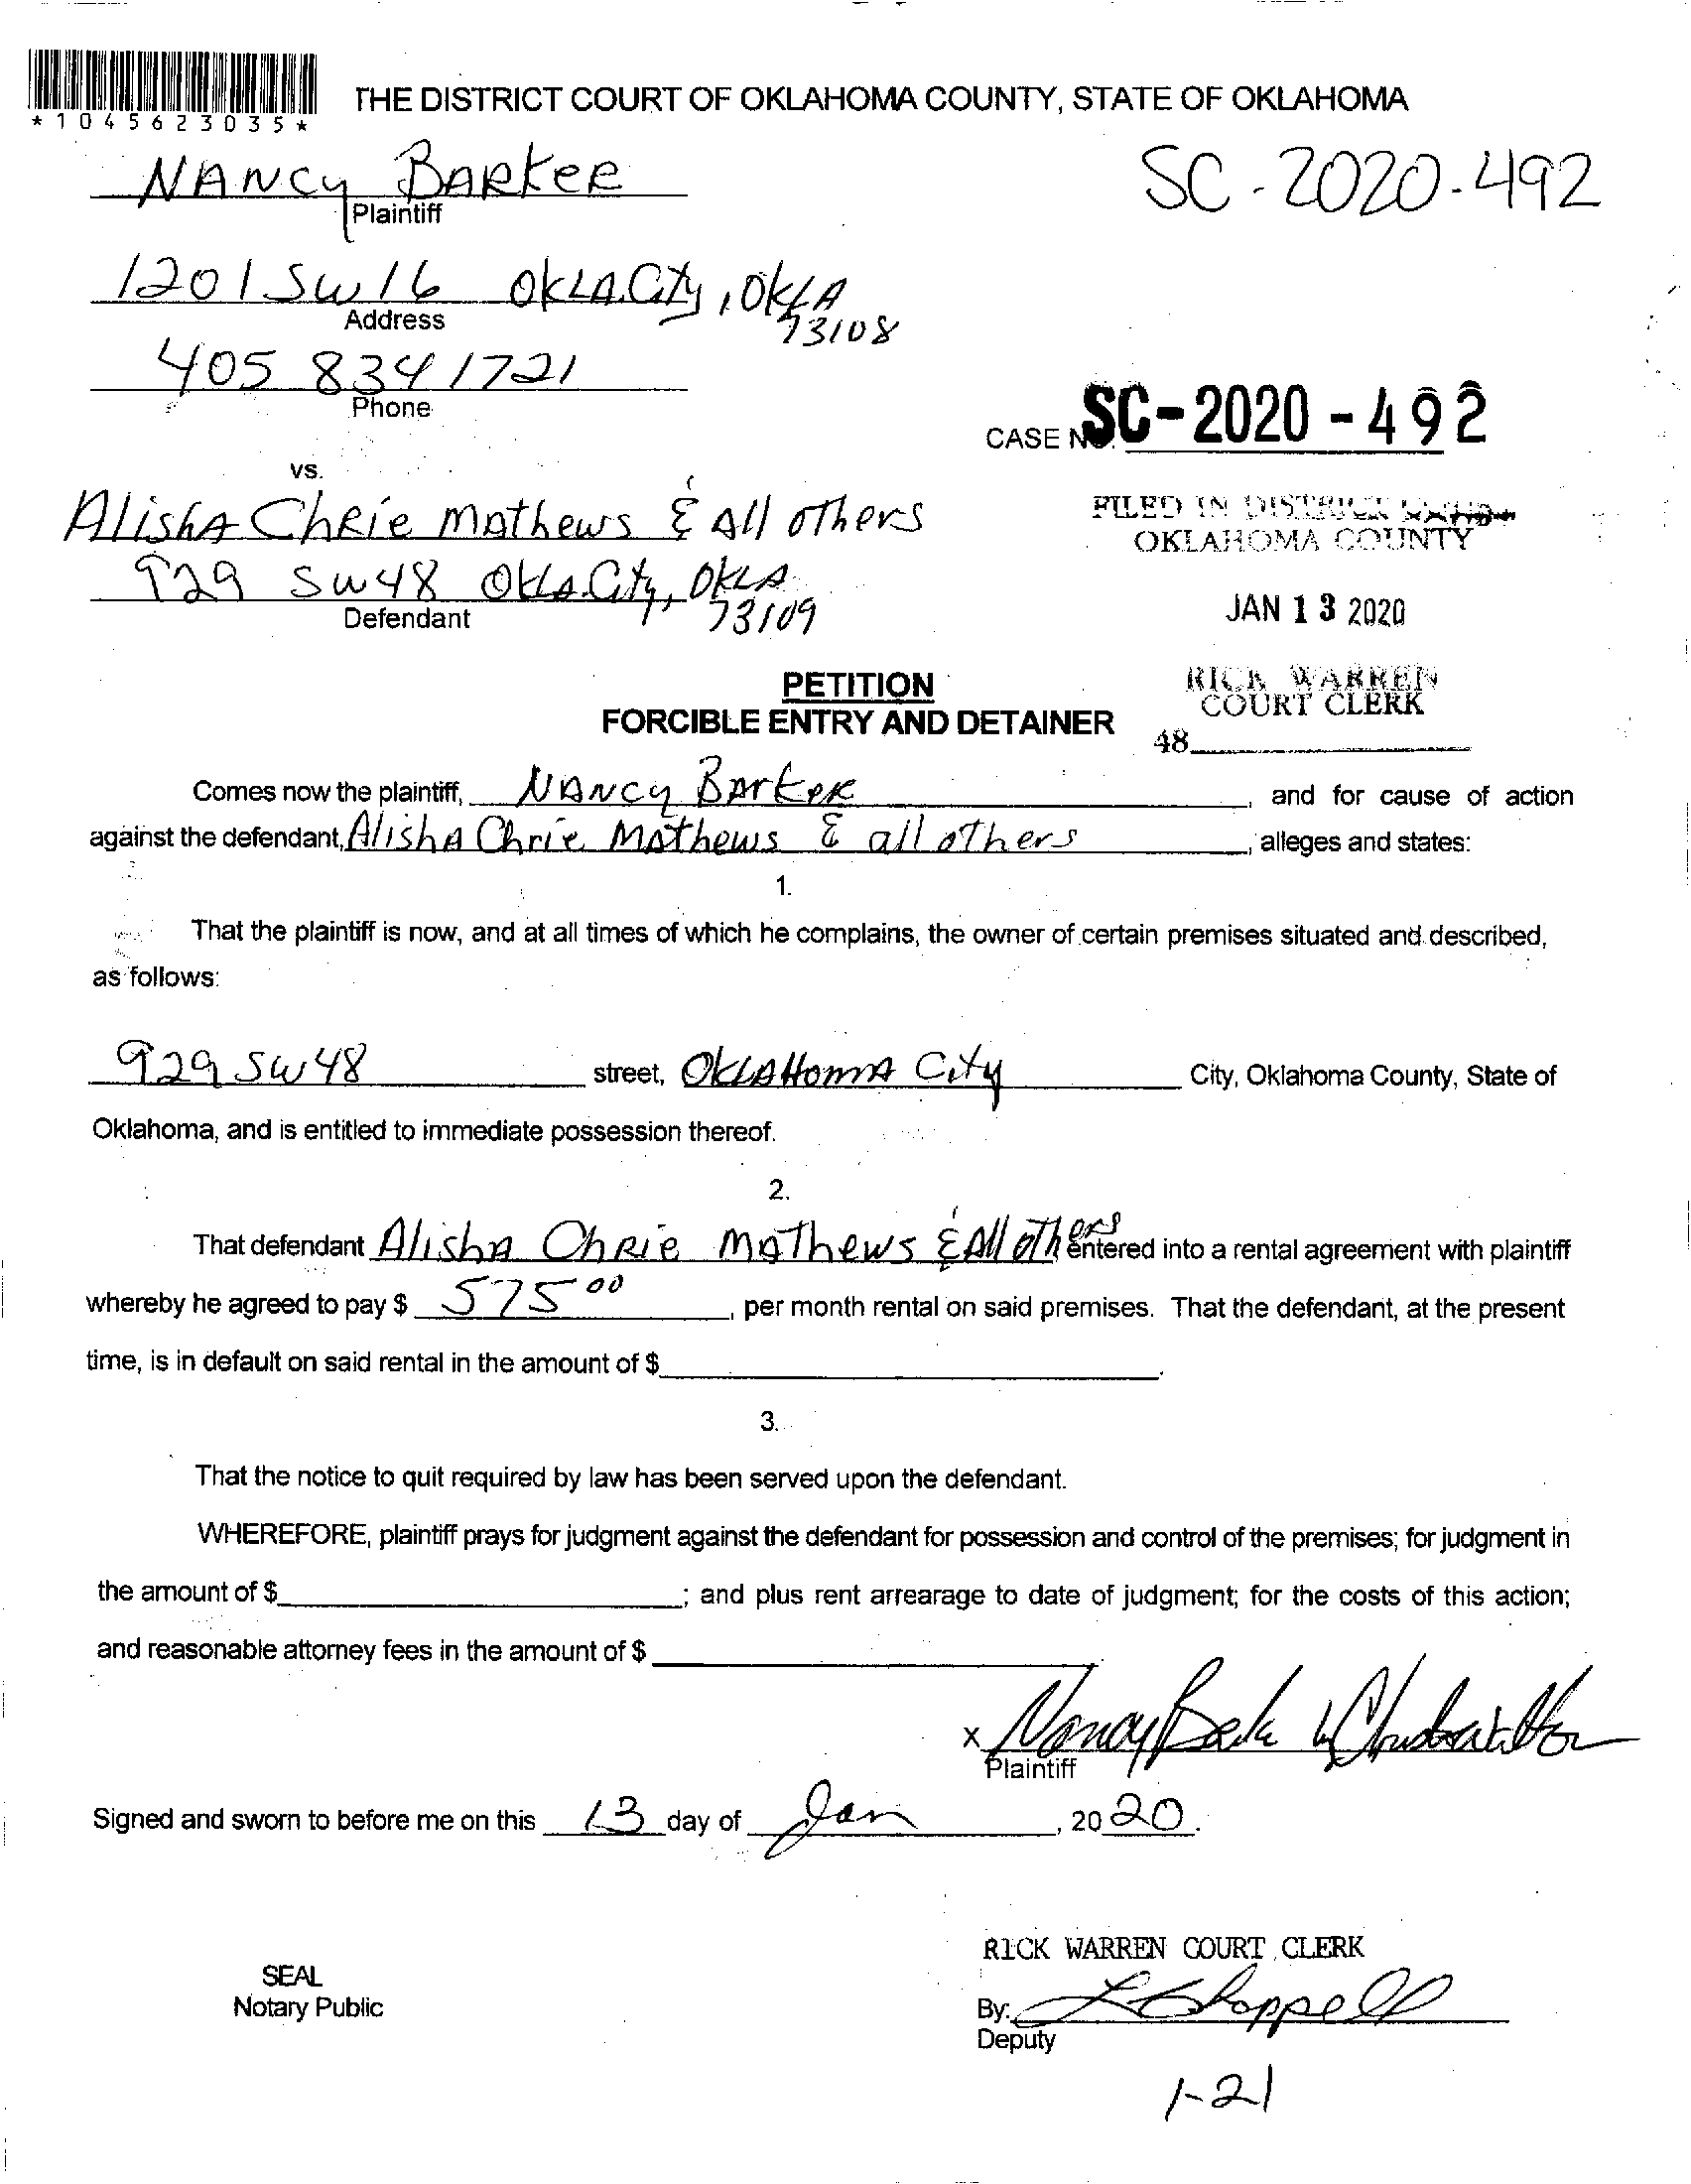 *1045623035*
THE DISTRICT COURT OF OKLAHOMA COUNTY, STATE OF OKLAHOMA
NANCY BARKER
Plaintiff
SC-2020-492
1201 SW 16 OKLA. City, OKLA
73108
Address
405 834 1721
Phone
CASE NO. SC-2020-492
vs.
AlishA ChRie Mathews & All others
929 SW 48 Okla. City, OKLA
73109
Defendant
FILED IN DISTRICT COURT
OKLAHOMA COUNTY
JAN 13 2020
RICK WARREN
COURT CLERK
48
PETITION
FORCIBLE ENTRY AND DETAINER
Comes now the plaintiff, NANCY BARKER, and for cause of action
against the defendant, AlishA Chrie Mathews & all others, alleges and states:
1.
That the plaintiff is now, and at all times of which he complains, the owner of certain premises situated and described,
as follows:
929 SW 48 street, OKLAHomA City City, Oklahoma County, State of
Oklahoma, and is entitled to immediate possession thereof.
2.
That defendant AlishA ChRie MAThews & All oThers entered into a rental agreement with plaintiff
whereby he agreed to pay $ 575 00, per month rental on said premises. That the defendant, at the present
time, is in default on said rental in the amount of $ .
3.
That the notice to quit required by law has been served upon the defendant.
WHEREFORE, plaintiff prays for judgment against the defendant for possession and control of the premises; for judgment in
the amount of $ ; and plus rent arrearage to date of judgment; for the costs of this action;
and reasonable attorney fees in the amount of $
x Nancy Barker by
Plaintiff
Signed and sworn to before me on this 13 day of Jan, 2020.
SEAL
Notary Public
RICK WARREN COURT CLERK
By:
Deputy
1-21